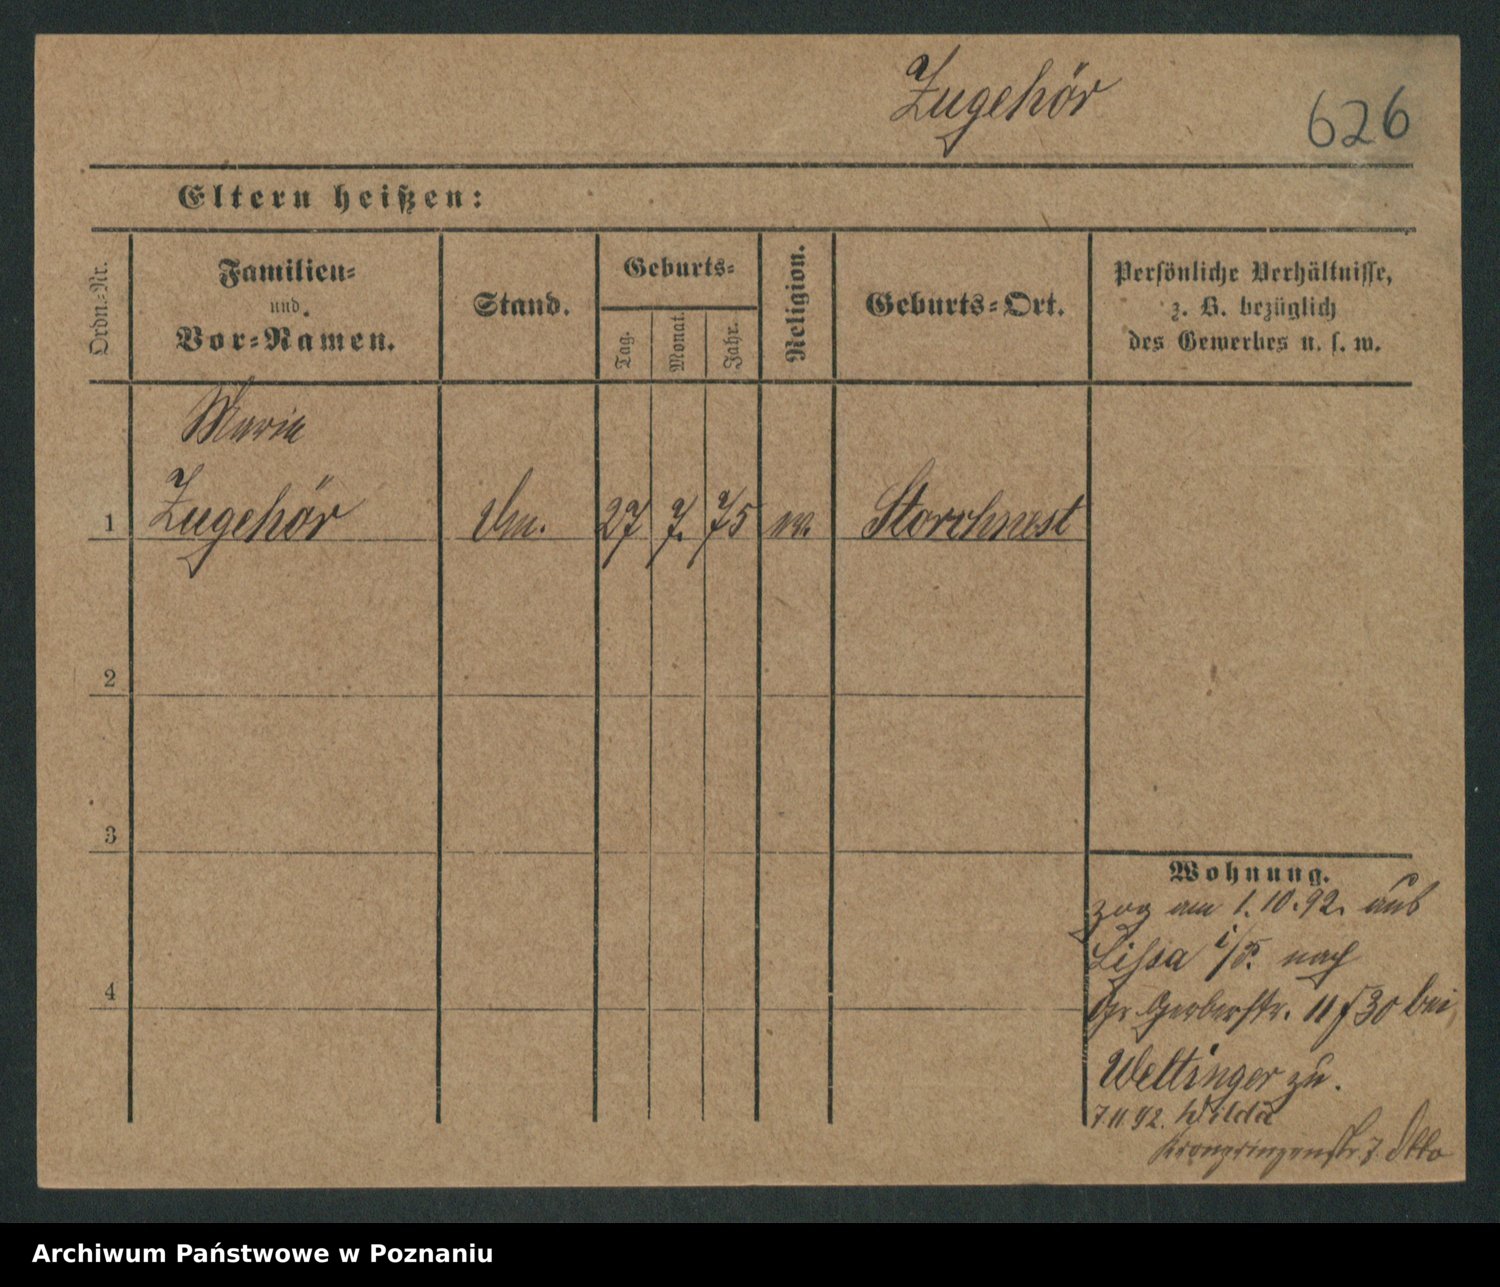 Zugehör
626
Eltern heißen:
Ordn.-Nr.
Familien-
und
Vor-Namen.
Stand.
Geburts-
Tag.
Monat.
Jahr.
Religion.
Geburts-Ort.
Persönliche Verhältnisse,
z. B. bezüglich
des Gewerbes u. s. w.
Marie
1 Zugehör 27 7. 75 Storchnest
2
3
4
Wohnung.
zog am 1.10.92. aus
Lissa i/P. nach
Gr. Gerberstr. 11 30 bei
Weltinger zu.
7.11.92. Wilda
Kronprinzenstr. 7 Otto
Archiwum Państwowe w Poznaniu